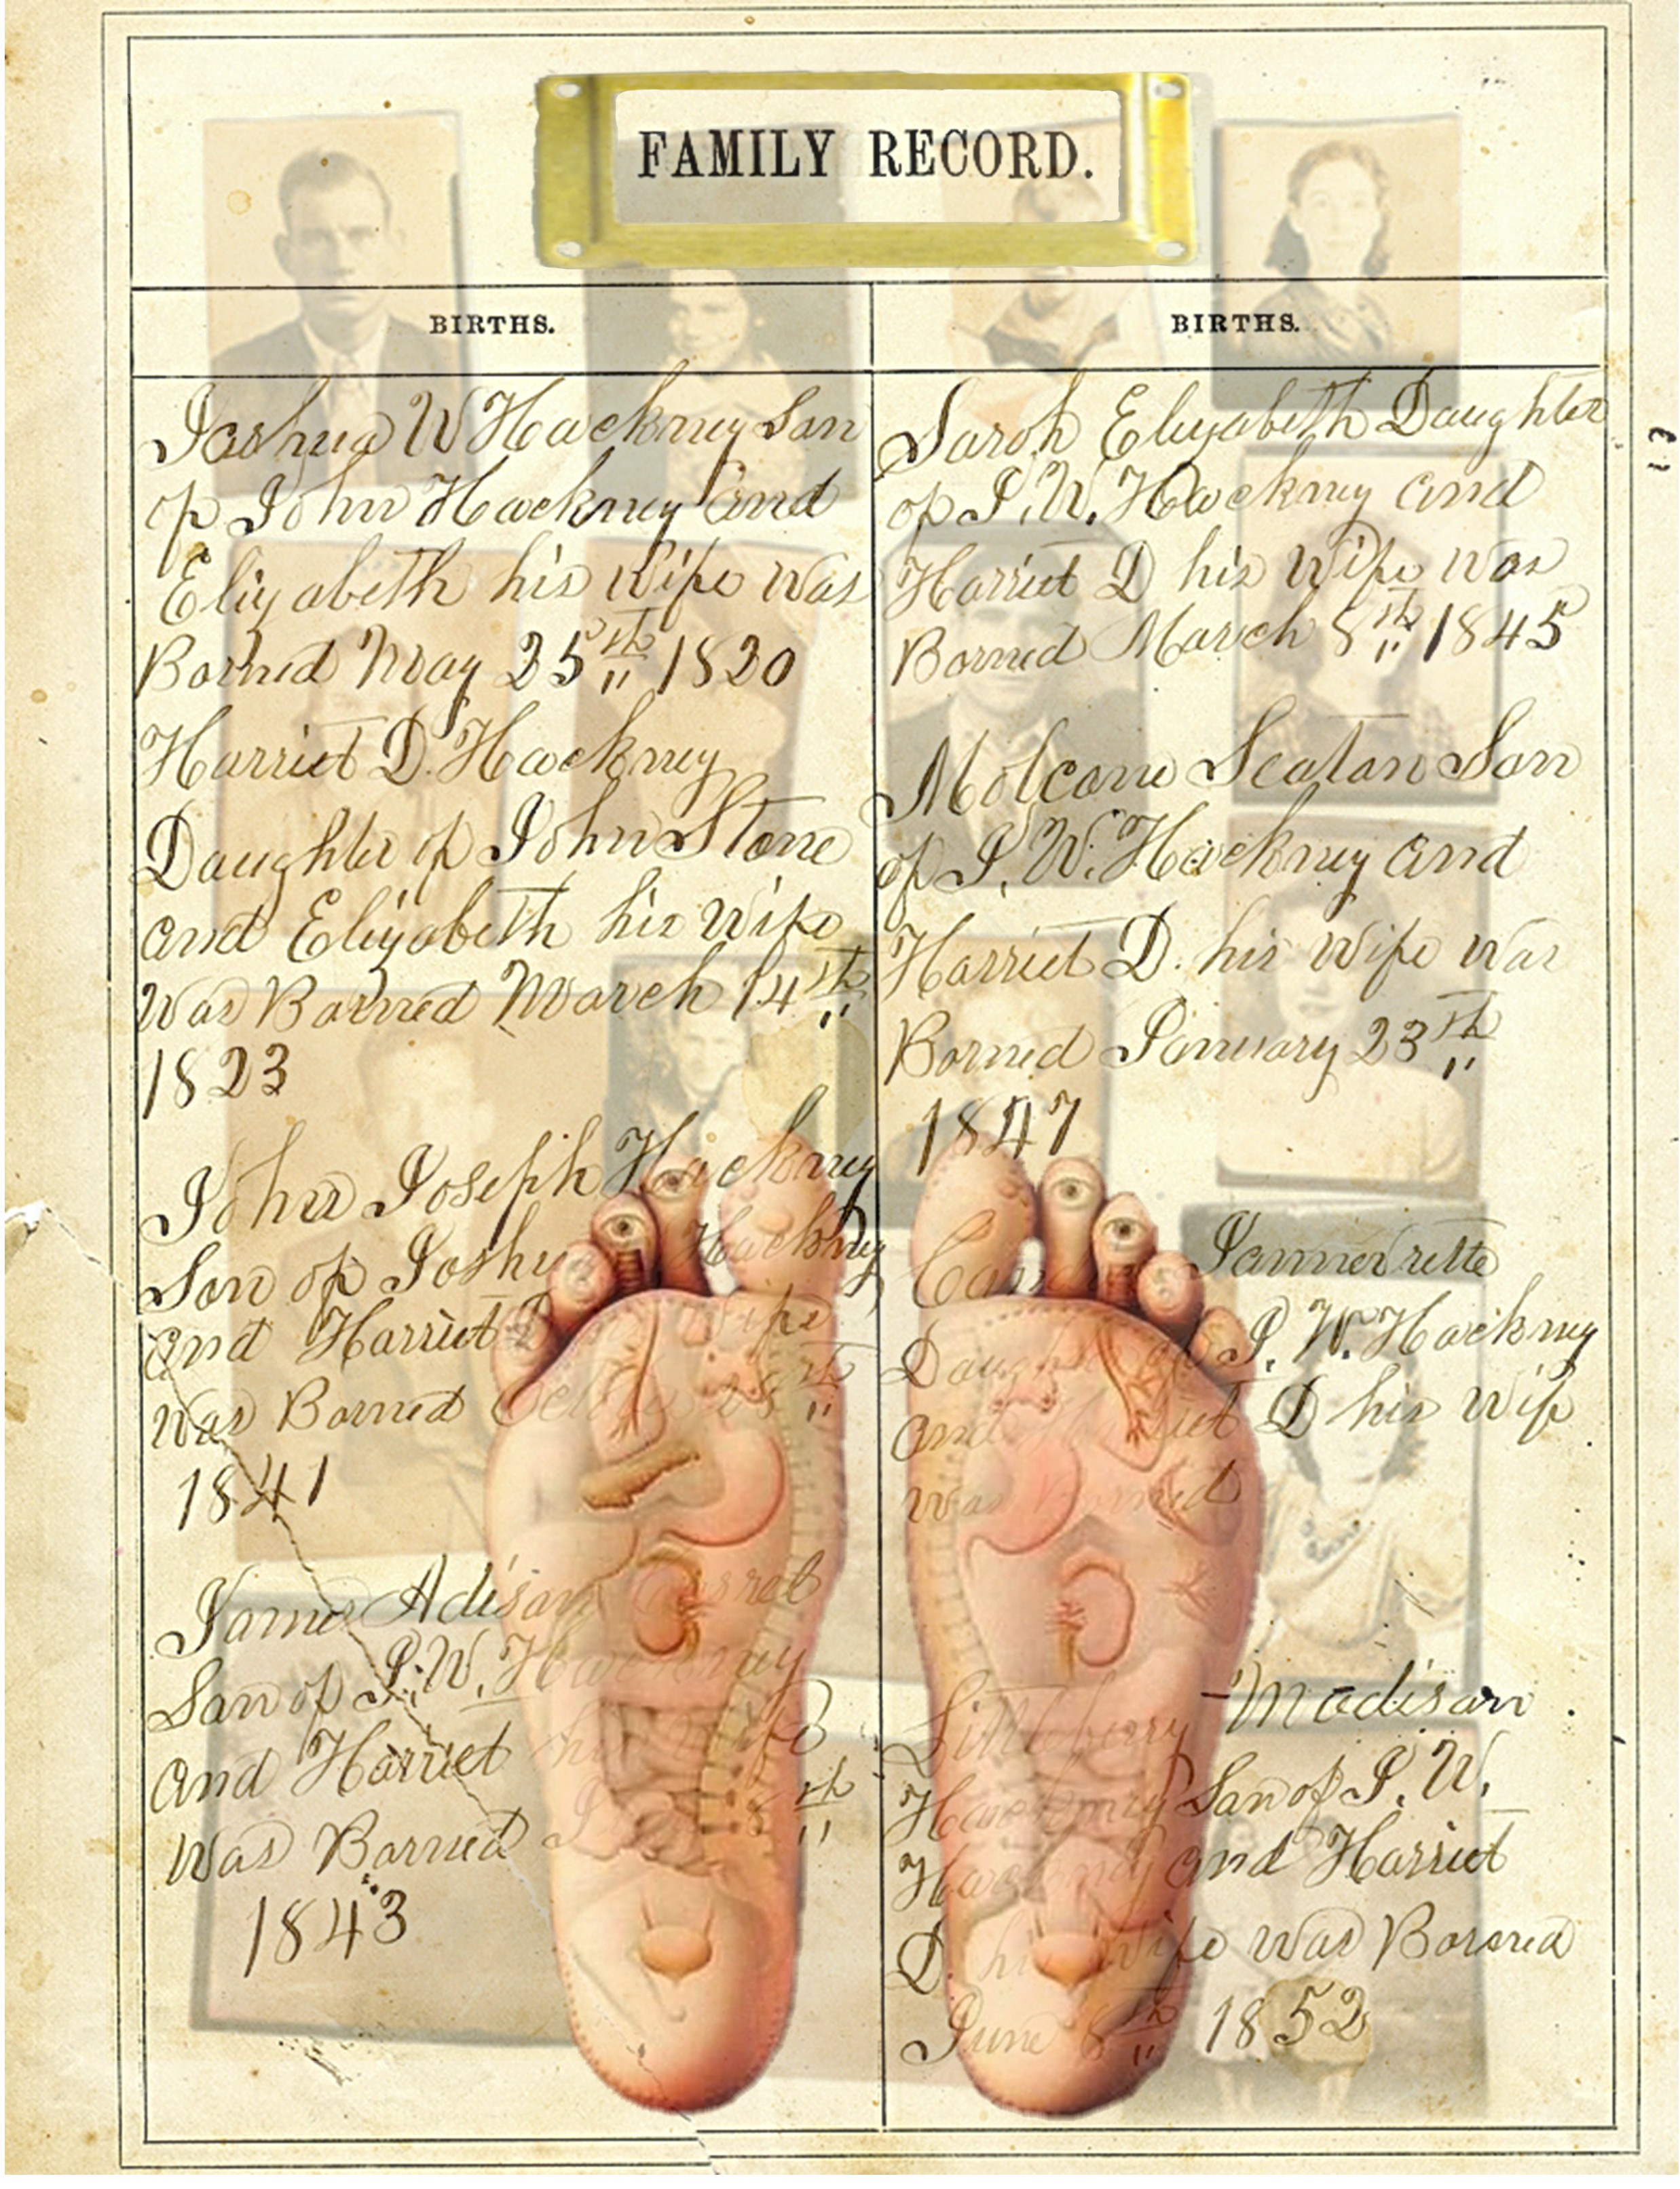 FAMILY RECORD.
BIRTHS.
Joshua W Hackney Son
of John Hackney And
Elizabeth his wife was
Borned May 25th 1820
Harriet D. Hackney
Daughter of John Stone
And Elizabeth his Wife
Was Borned March 14th
1823
John Joseph Hackney
Son of Joshu Hackney
And Harriet D Wife
Was Borned October 28th
1841
James Adison
Son of J. W. Hackney
And Harriet his Wife
Was Borned 8th
1843
BIRTHS.
Sarah Elizabeth Daughter
of J. W. Hackney and
Harriet D his Wife was
Borned March 8th 1845
Seaton Son
of J. W. Hackney and
Harriet D. his Wife was
Borned January 23th
1847
Daughter of J. W. Hackney
and Harriet D his Wife
Was Borned
Littleberry Madison
Hackney Son of J. W.
Hackney and Harriet
D. his Wife was Borned
June 8th 1852